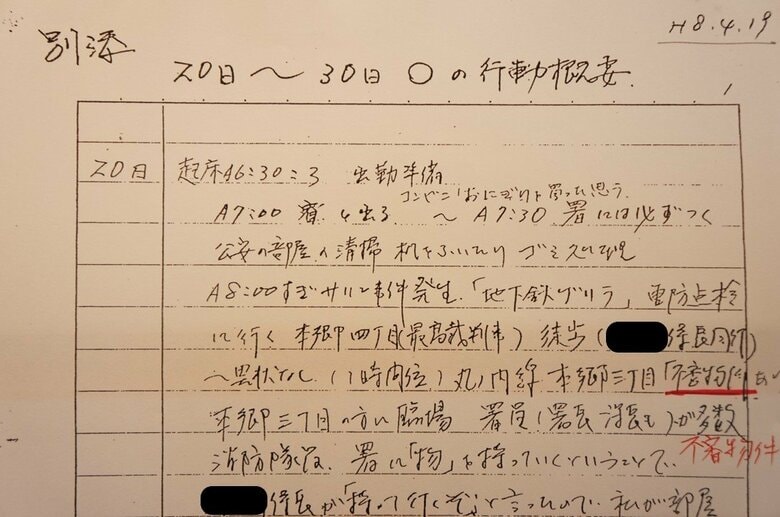 H8.4.19
別添
20日〜30日 〇の行動概要
20日 起床A6:30ころ 出勤準備
コンビニでおにぎりを買ったと思う
A7:00 寮を出る 〜A7:30 署には必ずつく
公安の部屋の清掃 机をふいたり ゴミ処理
A8:00すぎサリン事件発生.「地下鉄ゲリラ」 警防点検
に行く 本郷四丁目(最高裁判事) 徒歩( 係長同行)
〜異状なし.(1時間位) 丸ノ内線 本郷三丁目「不審物件」あり
本郷三丁目の方に臨場 署員(署長 課長も)が多数
消防隊員、署に「物」を持っていくということで、
不審物件
係長が「持って行くぞ」と言ったので、私が部屋